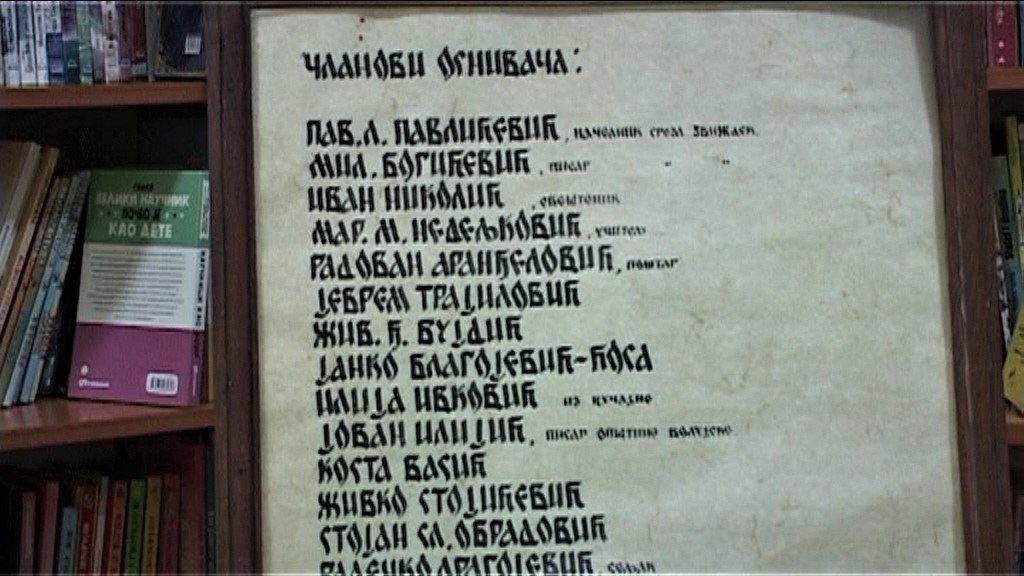 ЧЛАНОВИ ОСНИВАЧА:
ПАВ. Л. ПАВЛИЋЕВИЋ, НАЧЕЛНИК СРЕЗА ЗВИЖДСК.
МИЛ. БОГИЋЕВИЋ, ПИСАР " "
ИВАН НИКОЛИЋ, СВЕШТЕНИК
МАР. М. НЕДЕЉКОВИЋ, УЧИТЕЉ
РАДОВАН АРАНЂЕЛОВИЋ, ПОШТАР
ЈЕВРЕМ ТРАЈИЛОВИЋ
ЖИВ. Ђ. ВУЈДИЋ
ЈАНКО БЛАГОЈЕВИЋ-ЋОСА
ИЛИЈА ИВКОВИЋ ИЗ КУЧАЈНЕ
ЈОВАН ИЛИЈИЋ, ПИСАР ОПШТИНЕ
КОСТА ВАСИЋ
ЖИВКО СТОЈИЋЕВИЋ
СТОЈАН СЛ. ОБРАДОВИЋ
РАДЕНКО ДРАГОЈЕВИЋ, СЕЉАК
ВЕЛИКИ НАУЧНИК
ПОЧЕО ЈЕ
КАО ДЕТЕ